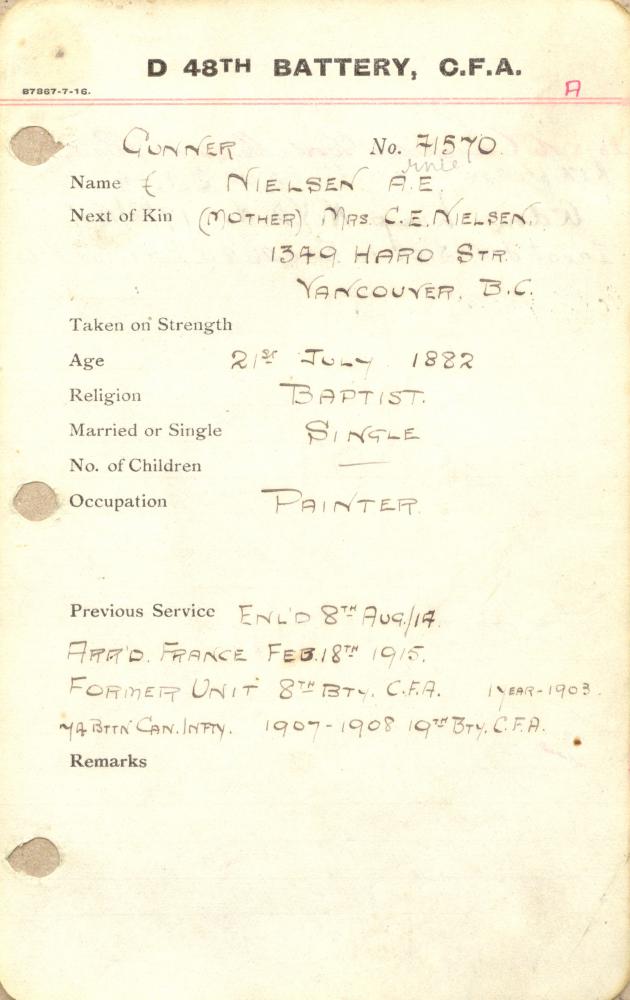 D 48TH BATTERY, C.F.A.
B7867-7-16.
A
GUNNER No. 71570.
Name NIELSEN A.E.
Next of Kin (MOTHER) MRS. C.E. NIELSEN.
1349. HARO STR.
VANCOUVER, B.C.
Taken on Strength
Age 21st JULY 1882
Religion BAPTIST.
Married or Single SINGLE
No. of Children —
Occupation PAINTER.
Previous Service ENL'D 8TH AUG./14.
ARR'D. FRANCE FEB. 18TH 1915.
FORMER UNIT 8TH BTY. C.F.A. 1 YEAR-1903.
BTTN CAN. INFTY. 1907-1908 19TH BTY. C.F.A.
Remarks